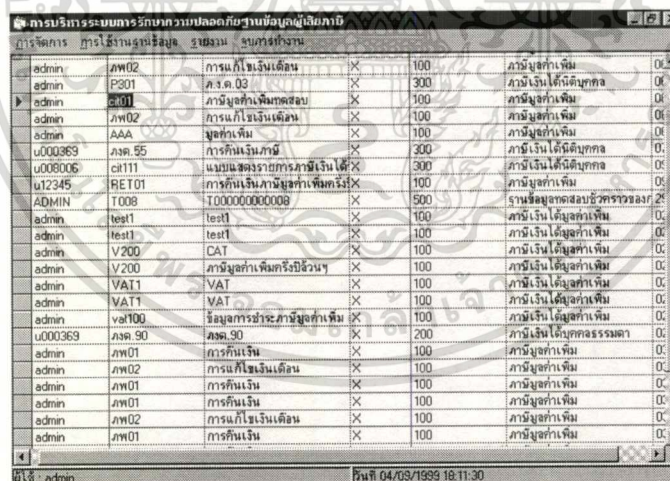 การบริหารระบบการรักษาความปลอดภัยฐานข้อมูลผู้เสียภาษี
การจัดการ การใช้งานฐานข้อมูล รายงาน จบการทำงาน
admin ภพ02 การแก้ไขเงินเดือน X 100 ภาษีมูลค่าเพิ่ม
admin P301 ภ.ง.ด.03 X 300 ภาษีเงินได้นิติบุคคล
admin cit01 ภาษีมูลค่าเพิ่มทดสอบ X 100 ภาษีมูลค่าเพิ่ม
admin ภพ02 การแก้ไขเงินเดือน X 100 ภาษีมูลค่าเพิ่ม
admin AAA มูลค่าเพิ่ม X 100 ภาษีมูลค่าเพิ่ม
u000369 ภงด.55 การคืนเงินภาษี X 300 ภาษีเงินได้นิติบุคคล
u008006 cit111 แบบแสดงรายการภาษีเงินได้ X 300 ภาษีเงินได้นิติบุคคล
u12345 RET01 การคืนเงินภาษีมูลค่าเพิ่มครึ่ง X 100 ภาษีมูลค่าเพิ่ม
ADMIN T008 T000000000008 X 500 ฐานข้อมูลทดสอบชั่วคราวของ
admin test1 test1 X 100 ภาษีเงินได้มูลค่าเพิ่ม
admin test1 test1 X 100 ภาษีเงินได้มูลค่าเพิ่ม
admin V200 CAT X 100 ภาษีเงินได้มูลค่าเพิ่ม
admin V200 ภาษีมูลค่าเพิ่มครึ่งปีล้วนๆ X 100 ภาษีเงินได้มูลค่าเพิ่ม
admin VAT1 VAT X 100 ภาษีเงินได้มูลค่าเพิ่ม
admin VAT1 VAT X 100 ภาษีเงินได้มูลค่าเพิ่ม
admin vat100 ข้อมูลการชำระภาษีมูลค่าเพิ่ม X 100 ภาษีเงินได้มูลค่าเพิ่ม
u000369 ภงด.90 ภงด.90 X 200 ภาษีเงินได้บุคคลธรรมดา
admin ภพ01 การคืนเงิน X 100 ภาษีมูลค่าเพิ่ม
admin ภพ02 การแก้ไขเงินเดือน X 100 ภาษีมูลค่าเพิ่ม
admin ภพ01 การคืนเงิน X 100 ภาษีมูลค่าเพิ่ม
admin ภพ01 การคืนเงิน X 100 ภาษีมูลค่าเพิ่ม
admin ภพ02 การแก้ไขเงินเดือน X 100 ภาษีมูลค่าเพิ่ม
admin ภพ01 การคืนเงิน X 100 ภาษีมูลค่าเพิ่ม
ผู้ใช้ : admin วันที่ 04/09/1999 18:11:30